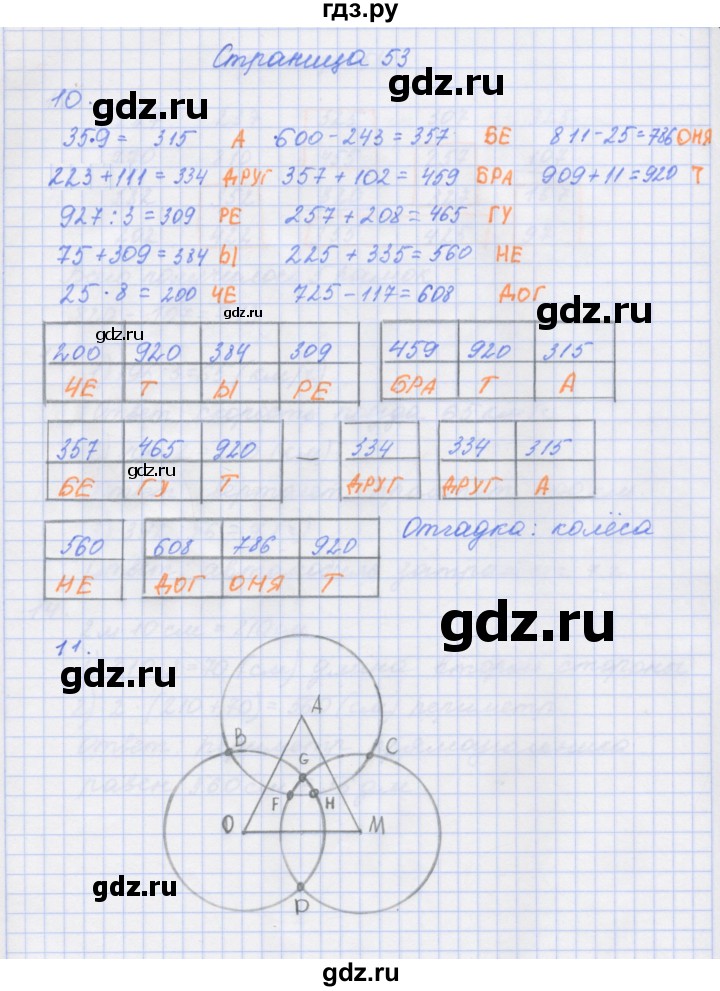 гдз.ру
Страница 53
gdz.ru
gdz.ru
10.
35·9 = 315 А ·600 – 243 = 357 БЕ 811 – 25 = 786 ОНЯ
223 + 111 = 334 ДРУГ 357 + 102 = 459 БРА 909 + 11 = 920 Т
927 : 3 = 309 РЕ 257 + 208 = 465 ГУ
75 + 309 = 384 Ы 225 + 335 = 560 НЕ
gdz.ru
25 · 8 = 200 ЧЕ 725 – 117 = 608 ДОГ
gdz.ru
200 920 384 309 459 920 315
ЧЕ Т Ы РЕ БРА Т А
gdz.ru
gdz.ru
357 465 920 – 334 334 315
gdz.ru
БЕ ГУ Т ДРУГ ДРУГ А
Отгадка: колёса
gdz.ru
560 608 786 920
НЕ ДОГ ОНЯ Т
gdz.ru
11.
gdz.ru
A
B C
G
F H
gdz.ru
O M
gdz.ru
D
gdz.ru
gdz.ru